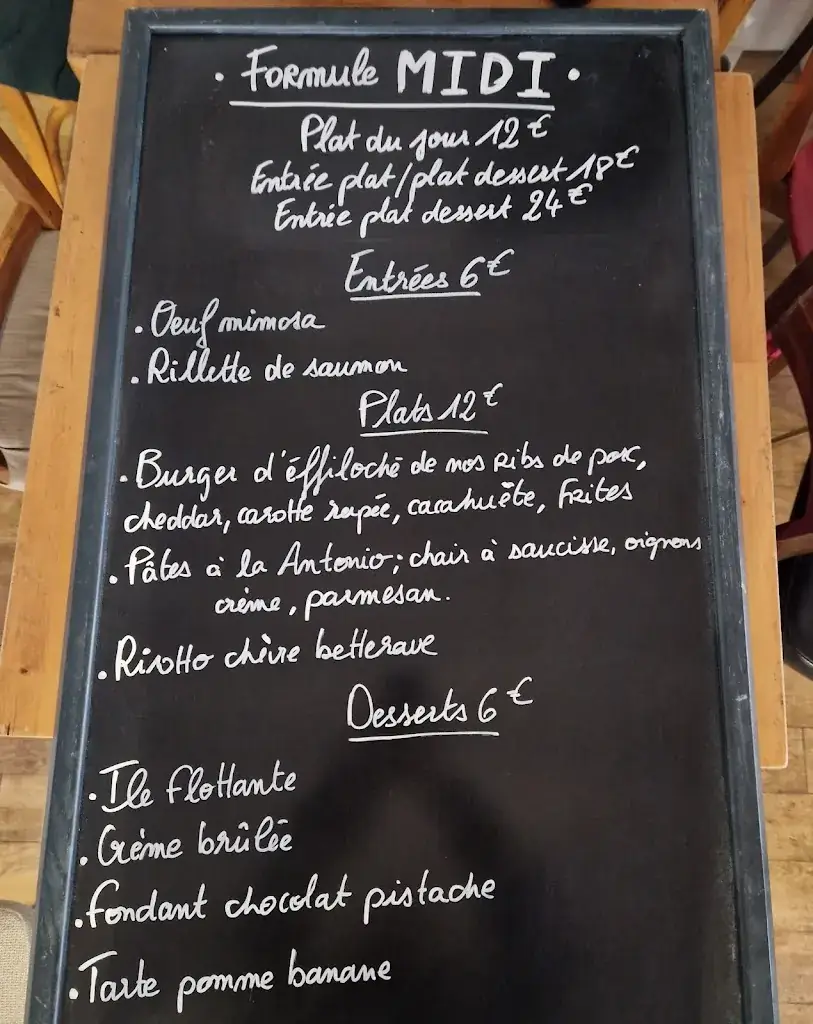 · FORMULE MIDI ·
Plat du jour 12€
Entrée plat/plat dessert 18€
Entrée plat dessert 24€
Entrées 6€
. Oeuf mimosa
. Rillette de saumon
Plats 12€
. Burger d'éffiloché de nos Ribs de porc,
cheddar, carotte rapée, cacahuète, Frites
. Pâtes à la Antonio; chair à saucisse, oignons
crème, parmesan.
. Risotto chèvre betterave
Desserts 6€
. Ile flottante
. Crème brûlée
. Fondant chocolat pistache
. Tarte pomme banane